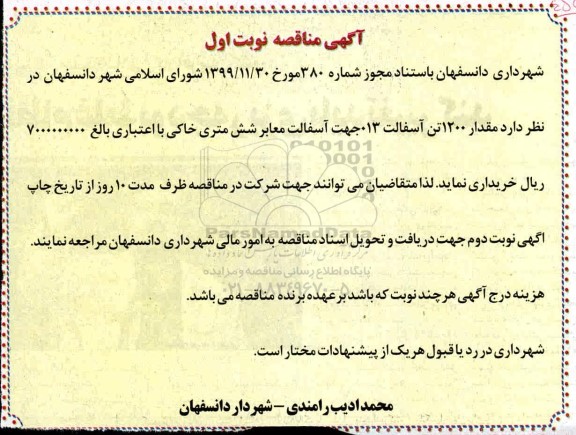 آگهی مناقصه نوبت اول
شهرداری دانسفهان باستناد مجوز شماره ۳۸۰مورخ ۱۳۹۹/۱۱/۳۰ شورای اسلامی شهر دانسفهان در
نظر دارد مقدار ۱۲۰۰تن آسفالت ۰۱۳جهت آسفالت معابر شش متری خاکی با اعتباری بالغ ۷۰۰۰۰۰۰۰۰۰
ریال خریداری نماید. لذا متقاضیان می توانند جهت شرکت در مناقصه ظرف مدت ۱۰ روز از تاریخ چاپ
اگهی نوبت دوم جهت دریافت و تحویل اسناد مناقصه به امور مالی شهرداری دانسفهان مراجعه نمایند.
ParsNamadData
پایگاه اطلاع رسانی مناقصه و مزایده
هزینه درج آگهی هر چند نوبت که باشد بر عهده برنده مناقصه می باشد.
۰۲۱-۸۸۳۴۹۶۷۰-۵
شهرداری در رد یا قبول هر یک از پیشنهادات مختار است.
محمد ادیب رامندی – شهردار دانسفهان